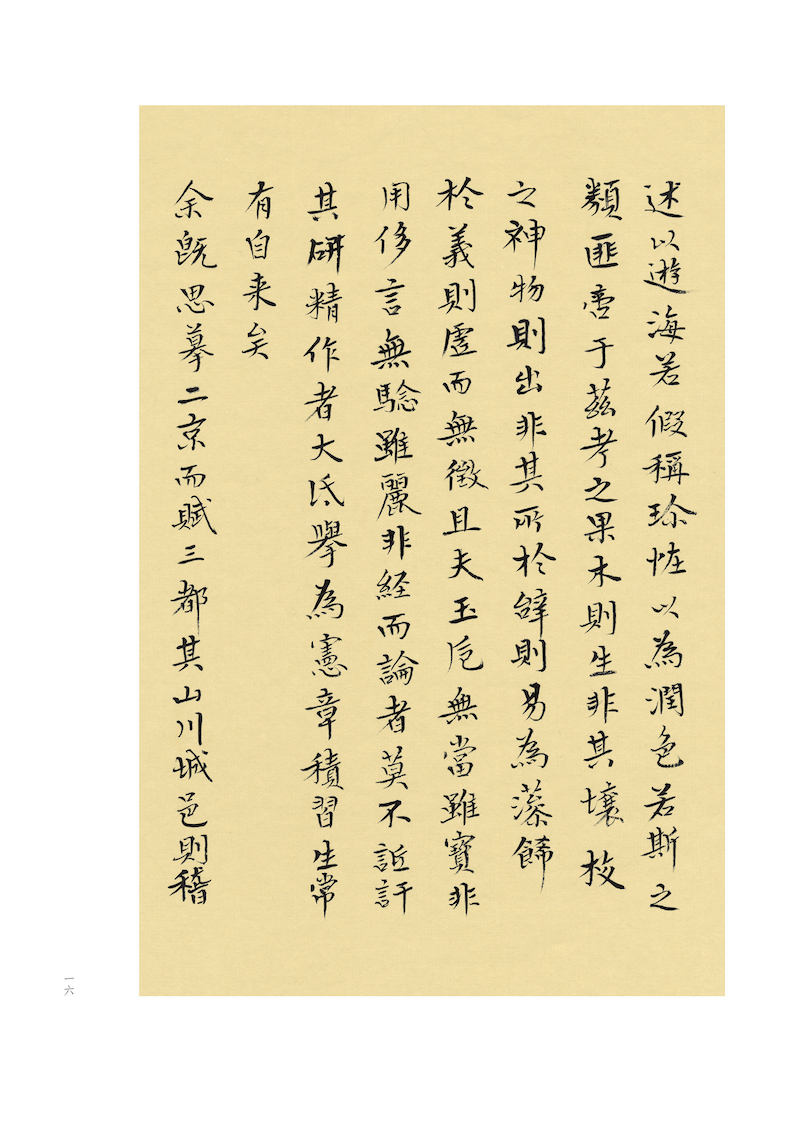 述以遊海若假稱珎恠以為潤色若斯之
類匪啻于茲考之果木則生非其壤校
之神物則出非其所於辭則易為藻飾
於義則虛而無徵且夫玉卮無當雖寶非
用侈言無驗雖麗非經而論者莫不詆訐
其研精作者大氐舉為憲章積習生常
有自来矣
余既思摹二京而賦三都其山川城邑則稽
一六